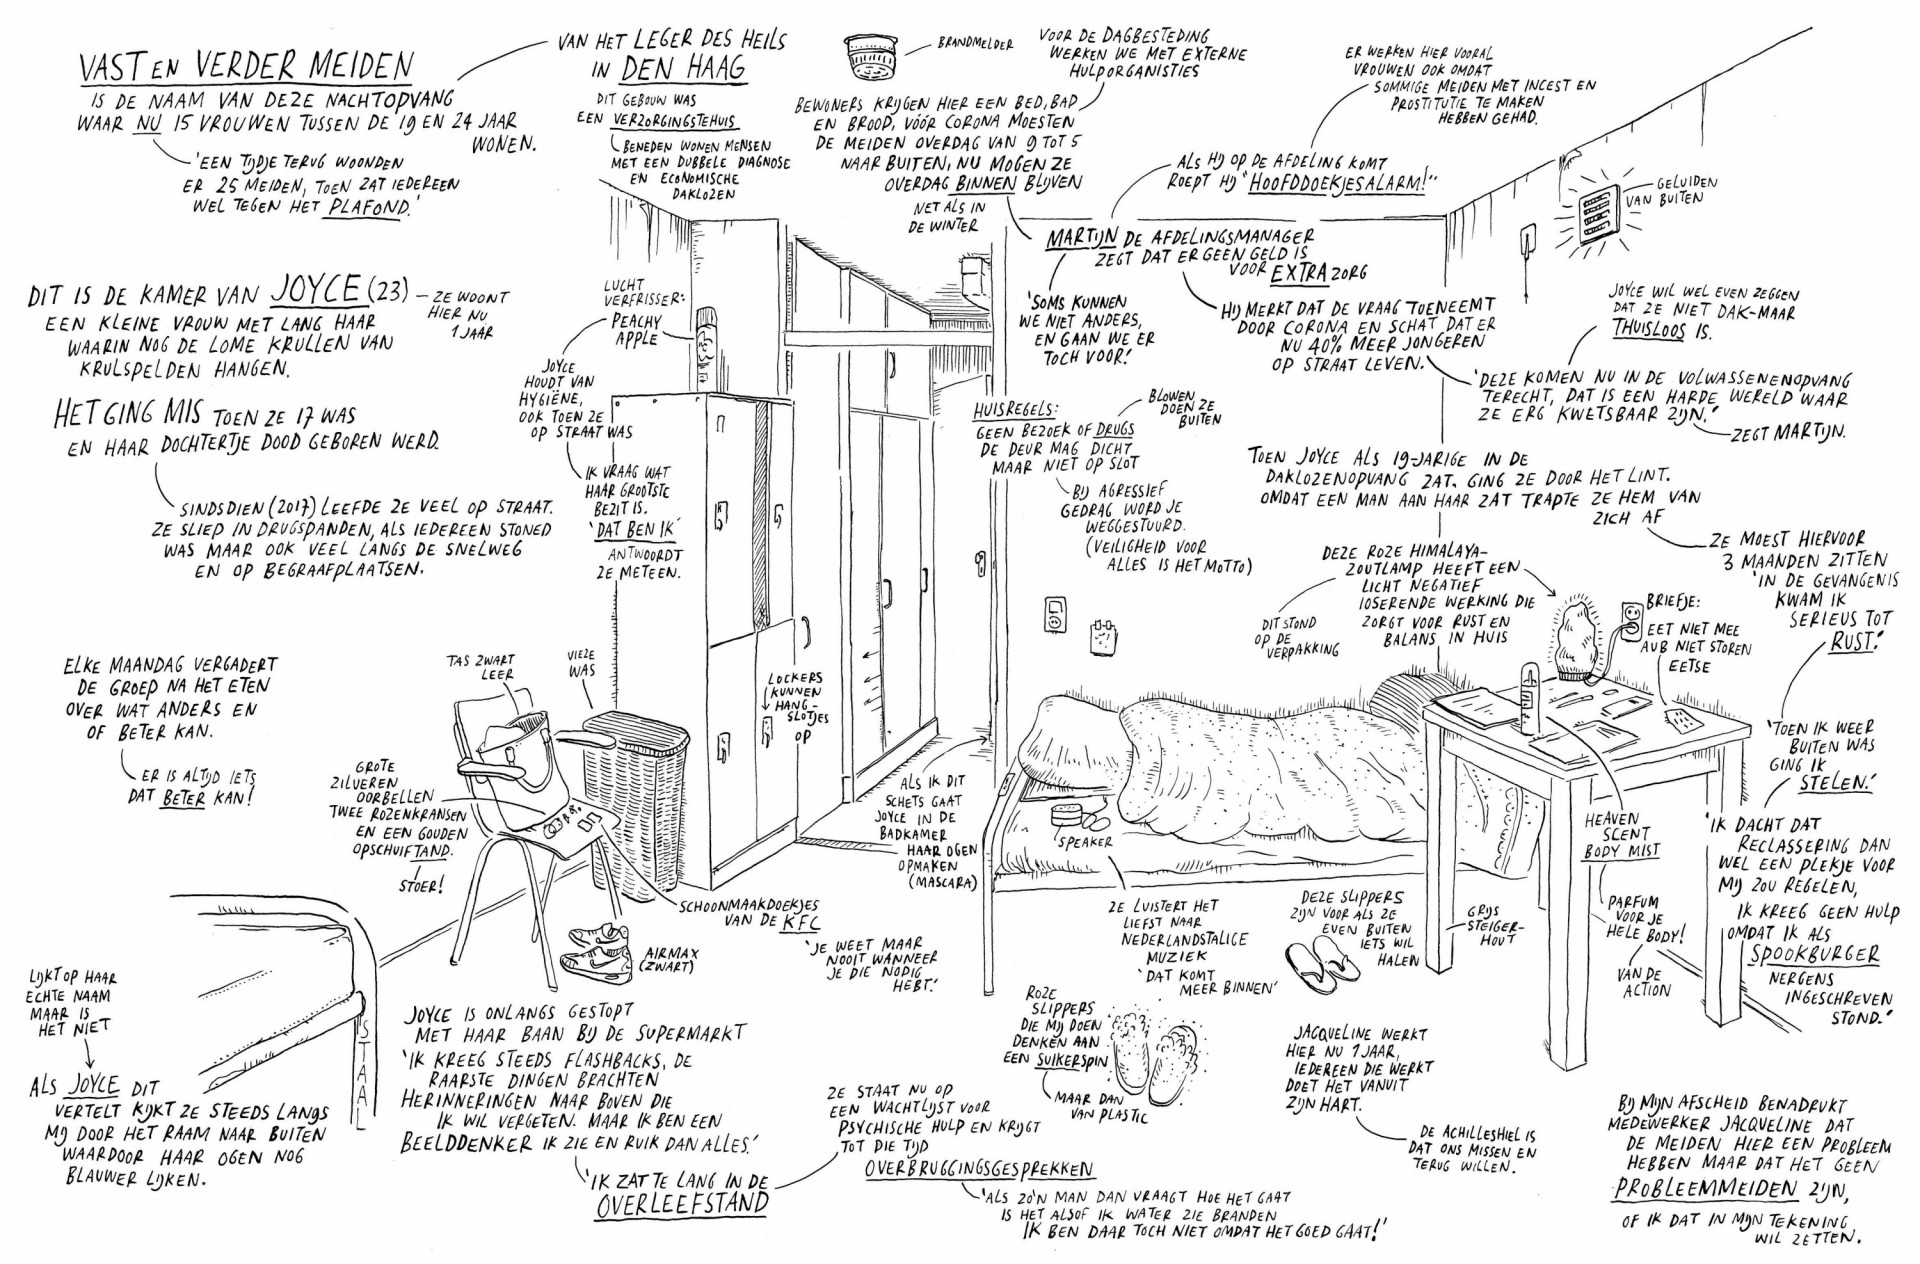 VAST EN VERDER MEIDEN
IS DE NAAM VAN DEZE NACHTOPVANG
WAAR NU 15 VROUWEN TUSSEN DE 19 EN 24 JAAR
WONEN.
'EEN TIJDJE TERUG WOONDEN
ER 25 MEIDEN, TOEN ZAT IEDEREEN
WEL TEGEN HET PLAFOND.'
VAN HET LEGER DES HEILS
IN DEN HAAG
DIT GEBOUW WAS
EEN VERZORGINGSTEHUIS
BENEDEN WONEN MENSEN
MET EEN DUBBELE DIAGNOSE
EN ECONOMISCHE
DAKLOZEN
BRANDMELDER
VOOR DE DAGBESTEDING
WERKEN WE MET EXTERNE
HULPORGANISTIES
BEWONERS KRIJGEN HIER EEN BED, BAD
EN BROOD, VÓÓR CORONA MOESTEN
DE MEIDEN OVERDAG VAN 9 TOT 5
NAAR BUITEN, NU MOGEN ZE
OVERDAG BINNEN BLIJVEN
NET ALS IN
DE WINTER
ER WERKEN HIER VOORAL
VROUWEN OOK OMDAT
SOMMIGE MEIDEN MET INCEST EN
PROSTITUTIE TE MAKEN
HEBBEN GEHAD.
ALS HIJ OP DE AFDELING KOMT
ROEPT HIJ "HOOFDDOEKJESALARM!"
GELUIDEN
VAN BUITEN
MARTIJN DE AFDELINGSMANAGER
ZEGT DAT ER GEEN GELD IS
VOOR EXTRA ZORG
'SOMS KUNNEN
WE NIET ANDERS,
EN GAAN WE ER
TOCH VOOR!'
HIJ MERKT DAT DE VRAAG TOENEEMT
DOOR CORONA EN SCHAT DAT ER
NU 40% MEER JONGEREN
OP STRAAT LEVEN.
'DEZE KOMEN NU IN DE VOLWASSENENOPVANG
TERECHT, DAT IS EEN HARDE WERELD WAAR
ZE ERG KWETSBAAR ZIJN.'
ZEGT MARTIJN.
JOYCE WIL WEL EVEN ZEGGEN
DAT ZE NIET DAK-MAAR
THUISLOOS IS.
DIT IS DE KAMER VAN JOYCE (23)
EEN KLEINE VROUW MET LANG HAAR
WAARIN NOG DE LOME KRULLEN VAN
KRULSPELDEN HANGEN.
ZE WOONT
HIER NU
1 JAAR
HET GING MIS TOEN ZE 17 WAS
EN HAAR DOCHTERTJE DOOD GEBOREN WERD.
SINDSDIEN (2017) LEEFDE ZE VEEL OP STRAAT.
ZE SLIEP IN DRUGSPANDEN, ALS IEDEREEN STONED
WAS MAAR OOK VEEL LANGS DE SNELWEG
EN OP BEGRAAFPLAATSEN.
LUCHT
VERFRISSER:
PEACHY
APPLE
JOYCE
HOUDT VAN
HYGIËNE,
OOK TOEN ZE
OP STRAAT WAS
IK VRAAG WAT
HAAR GROOTSTE
BEZIT IS.
'DAT BEN IK'
ANTWOORDT
ZE METEEN.
HUISREGELS:
GEEN BEZOEK OF DRUGS
DE DEUR MAG DICHT
MAAR NIET OP SLOT
BLOWEN
DOEN ZE
BUITEN
BIJ AGRESSIEF
GEDRAG WORD JE
WEGGESTUURD.
(VEILIGHEID VOOR
ALLES IS HET MOTTO)
TOEN JOYCE ALS 19-JARIGE IN DE
DAKLOZENOPVANG ZAT, GING ZE DOOR HET LINT.
OMDAT EEN MAN AAN HAAR ZAT TRAPTE ZE HEM VAN
ZICH AF
ZE MOEST HIERVOOR
3 MAANDEN ZITTEN
'IN DE GEVANGENIS
KWAM IK
SERIEUS TOT
RUST.'
'TOEN IK WEER
BUITEN WAS
GING IK
STELEN.'
'IK DACHT DAT
RECLASSERING DAN
WEL EEN PLEKJE VOOR
MIJ ZOU REGELEN,
IK KREEG GEEN HULP
OMDAT IK ALS
SPOOKBURGER
NERGENS
INGESCHREVEN
STOND."
DEZE ROZE HIMALAYA-
ZOUTLAMP HEEFT EEN
LICHT NEGATIEF
IOSERENDE WERKING DIE
ZORGT VOOR RUST EN
BALANS IN HUIS
DIT STOND
OP DE
VERPAKKING
BRIEFJE:
EET NIET MEE
AUB NIET STOREN
EETSE
ELKE MAANDAG VERGADERT
DE GROEP NA HET ETEN
OVER WAT ANDERS EN
OF BETER KAN.
ER IS ALTIJD IETS
DAT BETER KAN!
TAS ZWART
LEER
VIEZE
WAS
LOCKERS
KUNNEN
HANG-
SLOTJES
OP
GROTE
ZILVEREN
OORBELLEN
TWEE ROZENKRANSEN
EN EEN GOUDEN
OPSCHUIFTAND.
STOER!
ALS IK DIT
SCHETS GAAT
JOYCE IN DE
BADKAMER
HAAR OGEN
OPMAKEN
(MASCARA)
SPEAKER
SCHOONMAAKDOEKJES
VAN DE KFC
'JE WEET MAAR
NOOIT WANNEER
JE DIE NODIG
HEBT.'
AIRMAX
(ZWART)
ZE LUISTERT HET
LIEFST NAAR
NEDERLANDSTALIGE
MUZIEK
'DAT KOMT
MEER BINNEN'
DEZE SLIPPERS
ZIJN VOOR ALS ZE
EVEN BUITEN
IETS WIL
HALEN
GRIJS
STEIGER-
HOUT
HEAVEN
SCENT
BODY MIST
PARFUM
VOOR JE
HELE BODY!
VAN DE
ACTION
LIJKT OP HAAR
ECHTE NAAM
MAAR IS
HET NIET
ALS JOYCE DIT
VERTELT KIJKT ZE STEEDS LANGS
MIJ DOOR HET RAAM NAAR BUITEN
WAARDOOR HAAR OGEN NOG
BLAUWER LIJKEN.
STAAL
JOYCE IS ONLANGS GESTOPT
MET HAAR BAAN BIJ DE SUPERMARKT
'IK KREEG STEEDS FLASHBACKS, DE
RAARSTE DINGEN BRACHTEN
HERINNERINGEN NAAR BOVEN DIE
IK WIL VERGETEN. MAAR IK BEN EEN
BEELDDENKER IK ZIE EN RUIK DAN ALLES.'
'IK ZAT TE LANG IN DE
OVERLEEFSTAND
ZE STAAT NU OP
EEN WACHTLIJST VOOR
PSYCHISCHE HULP EN KRIJGT
TOT DIE TIJD
OVERBRUGGINGSGESPREKKEN
'ALS ZO'N MAN DAN VRAAGT HOE HET GAAT
IS HET ALSOF IK WATER ZIE BRANDEN
IK BEN DAAR TOCH NIET OMDAT HET GOED GAAT!'
ROZE
SLIPPERS
DIE MIJ DOEN
DENKEN AAN
EEN SUIKERSPIN
MAAR DAN
VAN PLASTIC
JACQUELINE WERKT
HIER NU 1 JAAR,
IEDEREEN DIE WERKT
DOET HET VANUIT
ZIJN HART.
DE ACHILLESHIEL IS
DAT ONS MISSEN EN
TERUG WILLEN.
BIJ MIJN AFSCHEID BENADRUKT
MEDEWERKER JACQUELINE DAT
DE MEIDEN HIER EEN PROBLEEM
HEBBEN MAAR DAT HET GEEN
PROBLEEMMEIDEN ZIJN,
OF IK DAT IN MIJN TEKENING
WIL ZETTEN.